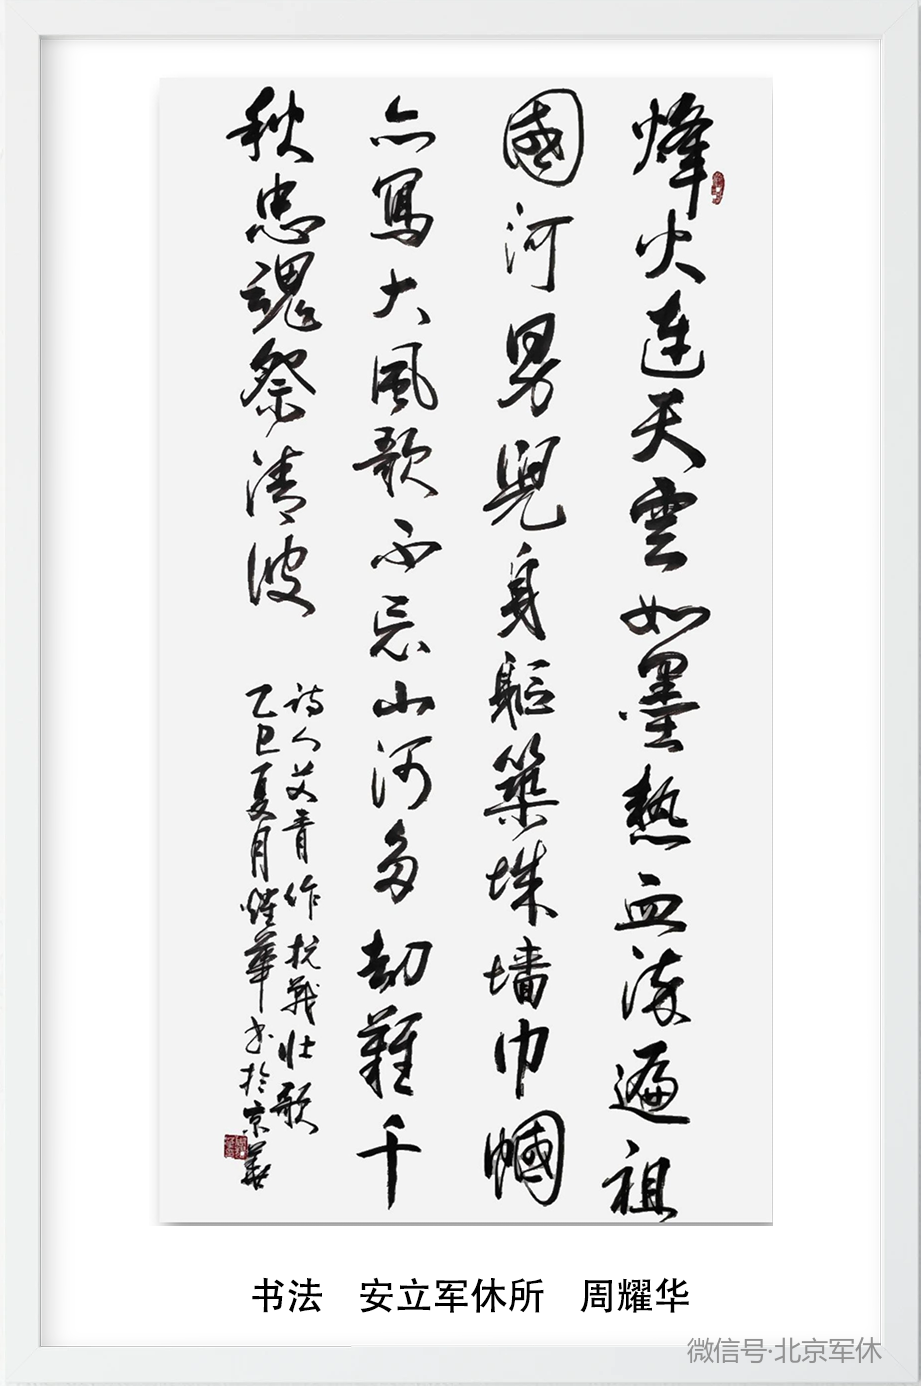 烽火連天雲如墨熱血流遍祖
國河男兒身軀築城墙巾幗
亦寫大風歌不忘山河多劫難千
秋忠魂祭清波
诗人艾青作抗戰壮歌
乙巳夏月耀華书於京華
书法 安立军休所 周耀华
微信号·北京军休